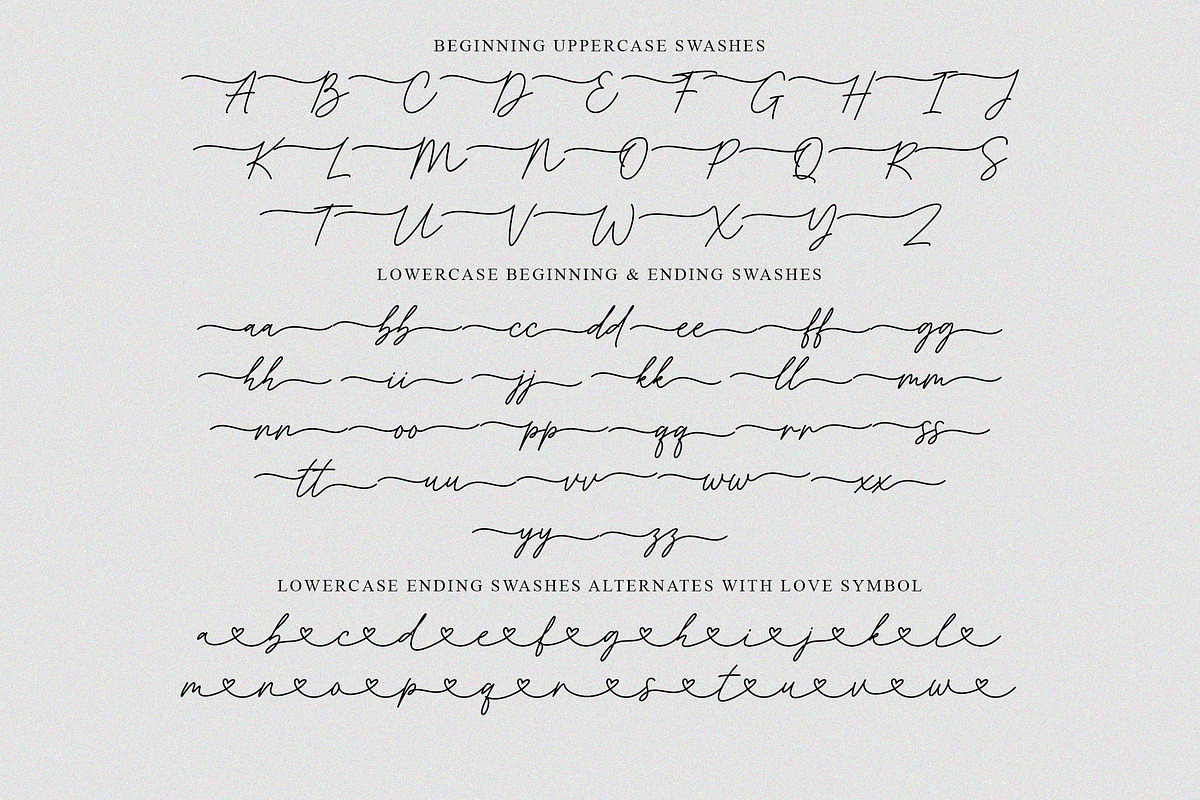 BEGINNING UPPERCASE SWASHES
A B C D E F G H I J
K L M N O P Q R S
T U V W X Y Z
LOWERCASE BEGINNING & ENDING SWASHES
aa bb cc dd ee ff gg
hh ii jj kk ll mm
nn oo pp qq rr ss
tt uu vv ww xx
yy zz
LOWERCASE ENDING SWASHES ALTERNATES WITH LOVE SYMBOL
a b c d e f g h i j k l
m n o p q r s t u v w